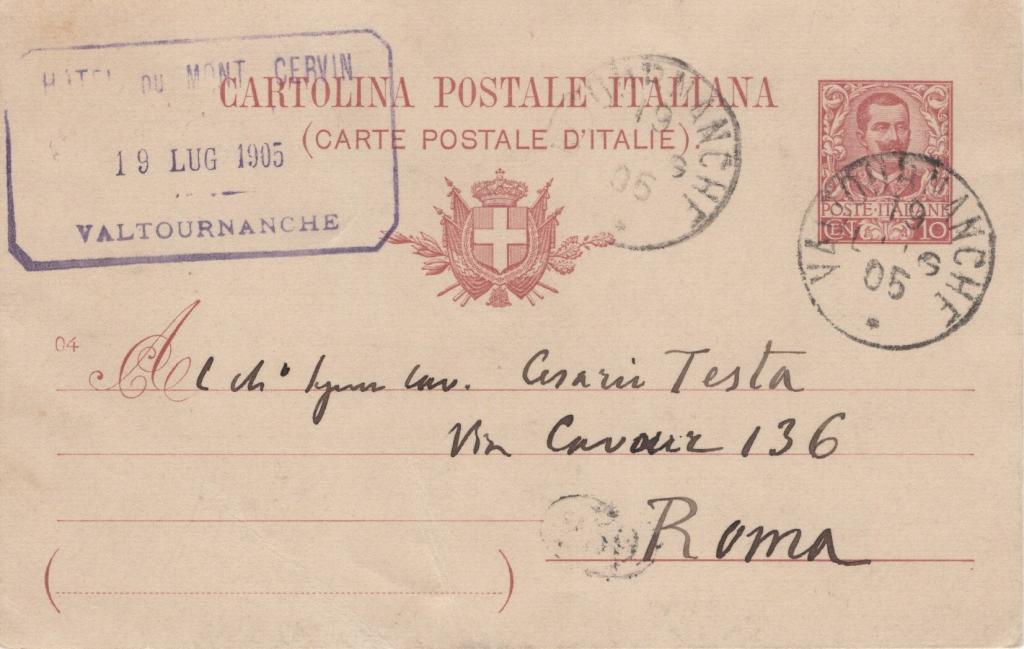 HOTEL DU MONT CERVIN
19 LUG 1905
VALTOURNANCHE
CARTOLINA POSTALE ITALIANA
(CARTE POSTALE D'ITALIE).
POSTE·ITALIANE
CEN. 10
VALTOURNANCHE
19
05
VALTOURNANCHE
19
05
04
Al Ch° Cav. Cesare Testa
Via Cavour 136
Roma